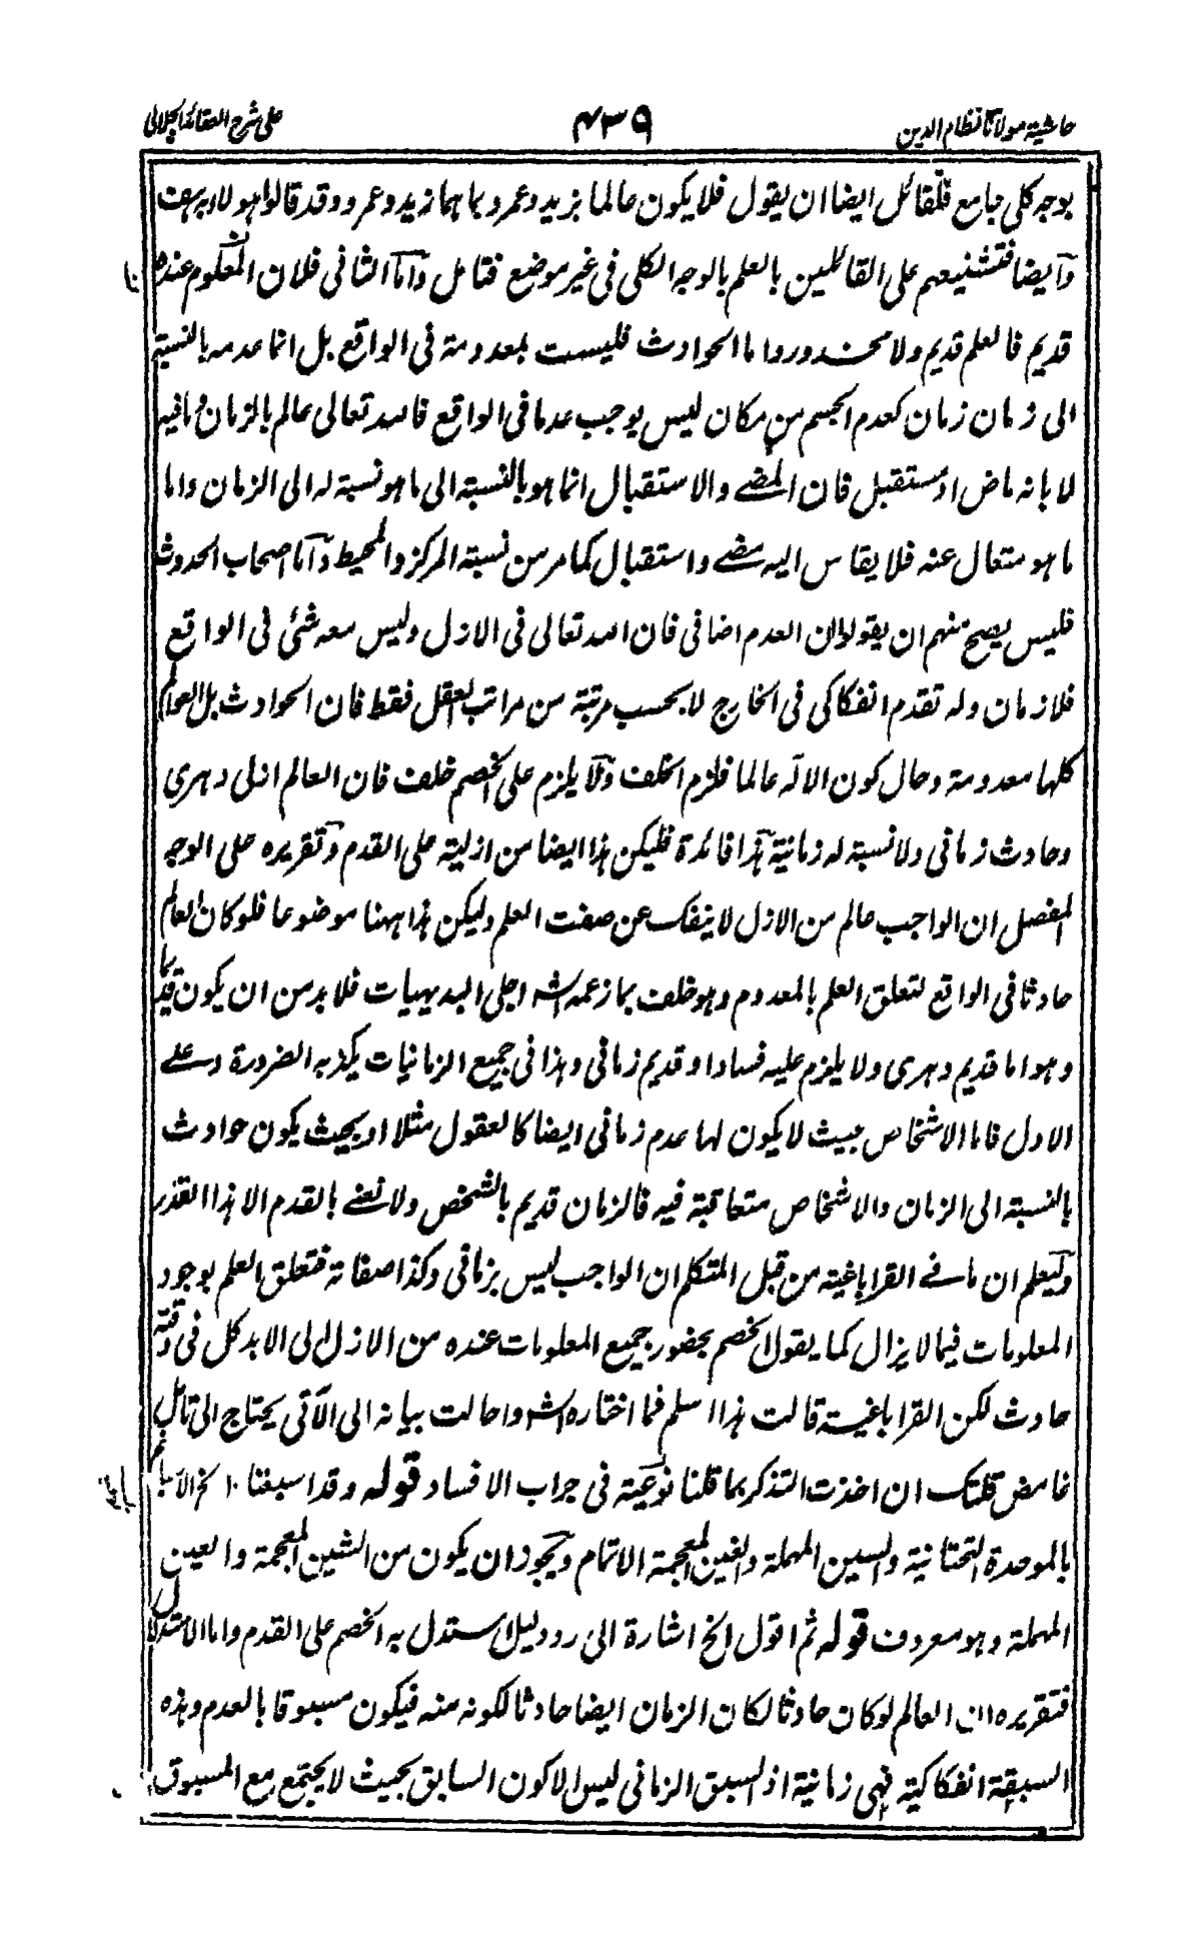 حاشية مولانا نظام الدين
٤٣٩
على شرح العقائد الجلالى
بوجه كلى جامع فلقائل ايضا ان يقول فلا يكون عالما بزيد وعمرو بما هما زيد وعمرو وقد قالوا هو لا
وايضا فتشنيعهم على القائلين بالعلم بالوجه الكلى فى غير موضع فتامل واما الثانى فلان المعلوم عندنا
قديم فالعلم قديم ولا محذور واما الحوادث فليست بمعدومة فى الواقع بل انما عدمه بالنسبة
الى زمان زمان كعدم الجسم من مكان ليس يوجب عدما فى الواقع فالله تعالى عالم بالزمان وما فيه
لا بانه ماض او مستقبل فان المضے والاستقبال انما هو بالنسبة الى ما هو نسبة له الى الزمان واما
ما هو متعال عنه فلا يقاس اليه مضے واستقبال كما مر من نسبة المركز والمحيط واما اصحاب الحدوث
فليس يصح منهم ان يقولوا ان العدم اضافى فان الله تعالى فى الازل وليس معه شئى فى الواقع
فلا زمان وله تقدم انفكاكى فى الخارج لا بحسب مرتبة من مراتب العقل فقط فان الحوادث بل العالم
كلها معدومة وحال كون الاله عالما فلزم الخلف ولا يلزم على الخصم خلف فان العالم ازلى دهرى
وحادث زمانى ولا نسبة له زمانية هذا فائدة فليكن هذا ايضا من ازلية على القدم وتقريره على الوجه
المفصل ان الواجب عالم من الازل لا ينفك عن صفت العلم وليكن هذا ههنا موضوعا فلو كان العالم
حادثا فى الواقع لتعلق العلم بالمعدوم وهو خلف بما زعمه الشه اجلى البديهيات فلا بد من ان يكون قديما
وهو اما قديم دهرى ولا يلزم عليه فسادا وقديم زمانى وهذا فى جميع الزمانيات يكذبه الضرورة وعلے
الاول فاما الاشخاص بحيث لا يكون لها عدم زمانى ايضا كالعقول مثلا او بحيث يكون حوادث
بالنسبة الى الزمان والاشخاص متعاقبة فيه فالزمان قديم بالشخص ولا نعنے بالقدم الا هذا القدر
وليعلم ان ما فے القراباغية من قبل المتكلم ان الواجب ليس بزمانى وكذا صفاته فتعلق العلم بوجود
المعلومات فيما لا يزال كما يقول الخصم بحضور جميع المعلومات عنده من الازل الى الابد كل فى وقته
حادث لكن القراباغية قالت هذا اسلم فما اختاره الشه واحالت بيانه الى الآتى يحتاج الى تامل
غامض قلتك ان اخذت التذكر بما قلنا نوعية فى جراب الافساد قوله وقد اسبغنا الخ الاسباغ
بالموحدة التحتانية والسين المهملة والغين المعجمة الاتمام ويجوز ان يكون من الشين المعجمة والعين
المهملة وهو معروف قوله ثم اقول الخ اشارة الى رد دليل يستدل به الخصم على القدم واما الاستدلال
فتقريره ان العالم لو كان حادثا لكان الزمان ايضا حادثا لكونه منه فيكون مسبوقا بالعدم وهذه
السبقة انفكاكية فهى زمانية اذ السبق الزمانى ليس الا كون السابق بحيث لا يجتمع مع المسبوق